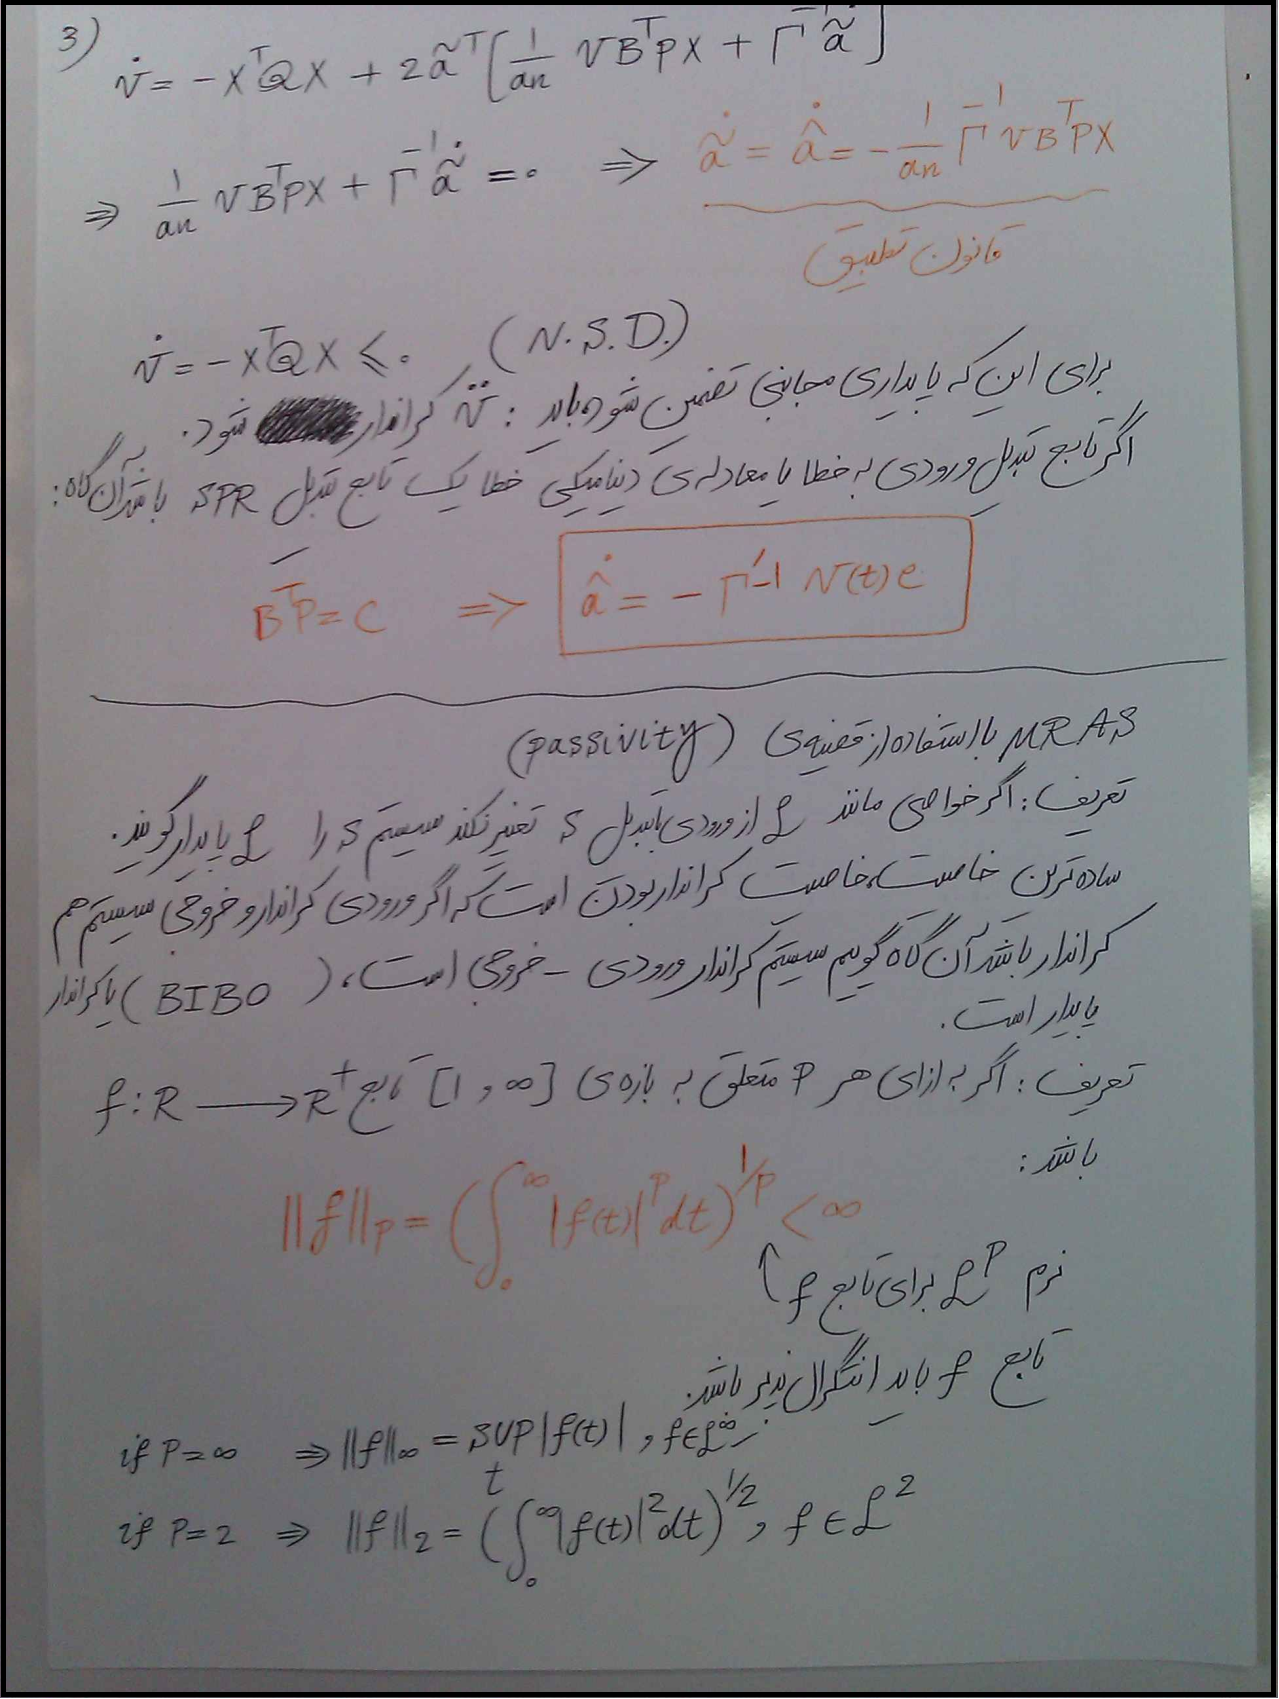 3)
V̇ = -xᵀQx + 2ãᵀ[1/aₙ vBᵀPx + Γ⁻¹ã̇]
⇒ 1/aₙ vBᵀPx + Γ⁻¹ã̇ = 0 ⇒ ã̇ = â̇ = -1/aₙ Γ⁻¹vBᵀPx
قانون تطبیق
V̇ = -xᵀQx ≤ 0 (N.S.D.)
برای این که پایداری مجانبی تضمین شود باید : V̈ کراندار شود.
اگر تابع تبدیل ورودی به خطا یا معادله‌ی دینامیکی خطا یک تابع تبدیل SPR باشد آن گاه:
BᵀP = C ⇒ â̇ = -Γ⁻¹ v(t)e
MRAS با استفاده از قضیه‌ی (passivity)
تعریف : اگر خواصی مانند L از ورودی با تبدیل S تغییر نکند سیستم S را L پایدار گویند.
ساده ترین خاصیت، خاصیت کراندار بودن است که اگر ورودی کراندار و خروجی سیستم هم
کراندار باشد آن گاه گوییم سیستم کراندار ورودی - خروجی است، (BIBO) یا کراندار
پایدار است.
تعریف : اگر به ازای هر P متعلق به بازه‌ی [1 , ∞] تابع f : R ⟶ R⁺
باشد :
||f||p = (∫₀^∞ |f(t)|ᵖ dt)^1/p < ∞
نرم Lᵖ برای تابع f ↑
تابع f باید انتگرال پذیر باشد.
if P=∞ ⇒ ||f||∞ = sup_t |f(t)| , f∈L^∞
if P=2 ⇒ ||f||₂ = (∫₀^∞ |f(t)|² dt)^1/2 , f ∈ L²